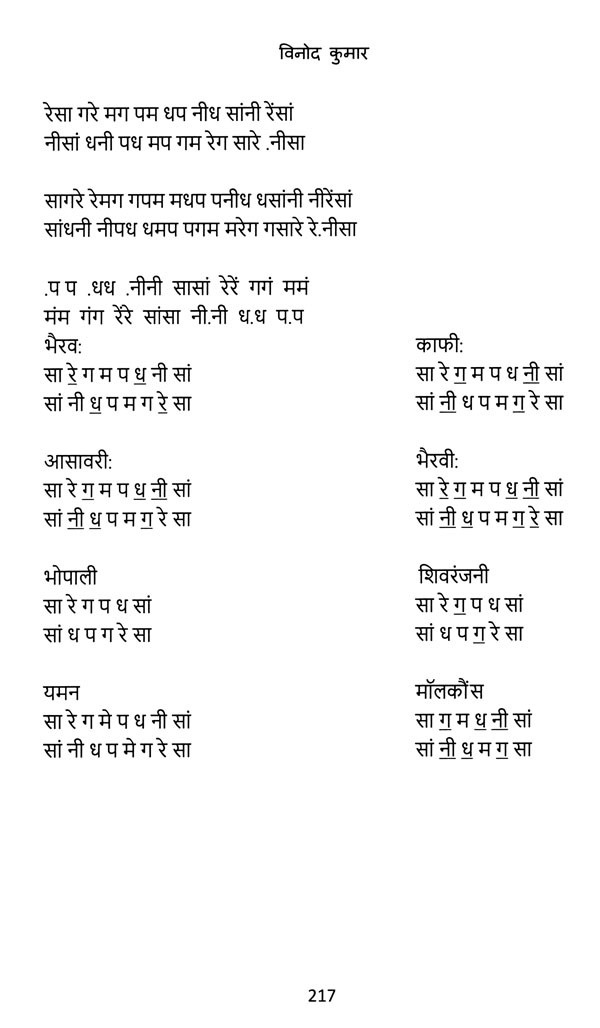 विनोद कुमार
रेसा गरे मग पम धप नीध सांनी रेंसां
नीसां धनी पध मप गम रेग सारे .नीसा
सागरे रेमग गपम मधप पनीध धसांनी नीरेंसां
सांधनी नीपध धमप पगम मरेग गसारे रे.नीसा
.प प .धध .नीनी सासां रेरें गगं ममं
मंम गंग रेंरे सांसा नी.नी ध.ध प.प
भैरव:
सा रे॒ ग म प ध॒ नी सां
सां नी ध॒ प म ग रे॒ सा
काफी:
सा रे ग॒ म प ध नी॒ सां
सां नी॒ ध प म ग॒ रे सा
आसावरी:
सा रे ग॒ म प ध॒ नी॒ सां
सां नी॒ ध॒ प म ग॒ रे सा
भैरवी:
सा रे॒ ग॒ म प ध॒ नी॒ सां
सां नी॒ ध॒ प म ग॒ रे॒ सा
भोपाली
सा रे ग प ध सां
सां ध प ग रे सा
शिवरंजनी
सा रे ग॒ प ध सां
सां ध प ग॒ रे सा
यमन
सा रे ग मे प ध नी सां
सां नी ध प मे ग रे सा
मॉलकौंस
सा ग॒ म ध॒ नी॒ सां
सां नी॒ ध॒ म ग॒ सा
217